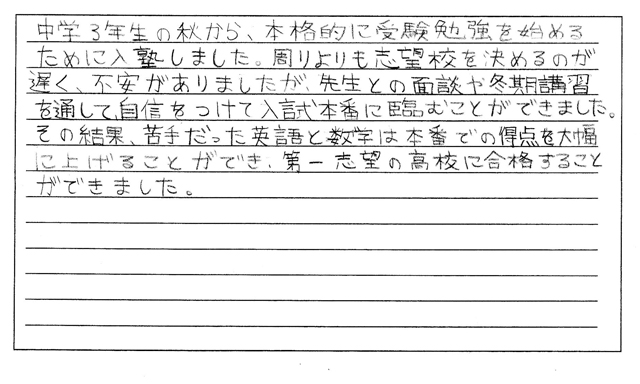 中学3年生の秋から、本格的に受験勉強を始める
ために入塾しました。周りよりも志望校を決めるのが
遅く、不安がありましたが、先生との面談や冬期講習
を通して、自信をつけて入試本番に臨むことができました。
その結果、苦手だった英語と数学は本番での得点を大幅
に上げることができ、第一志望の高校に合格すること
ができました。